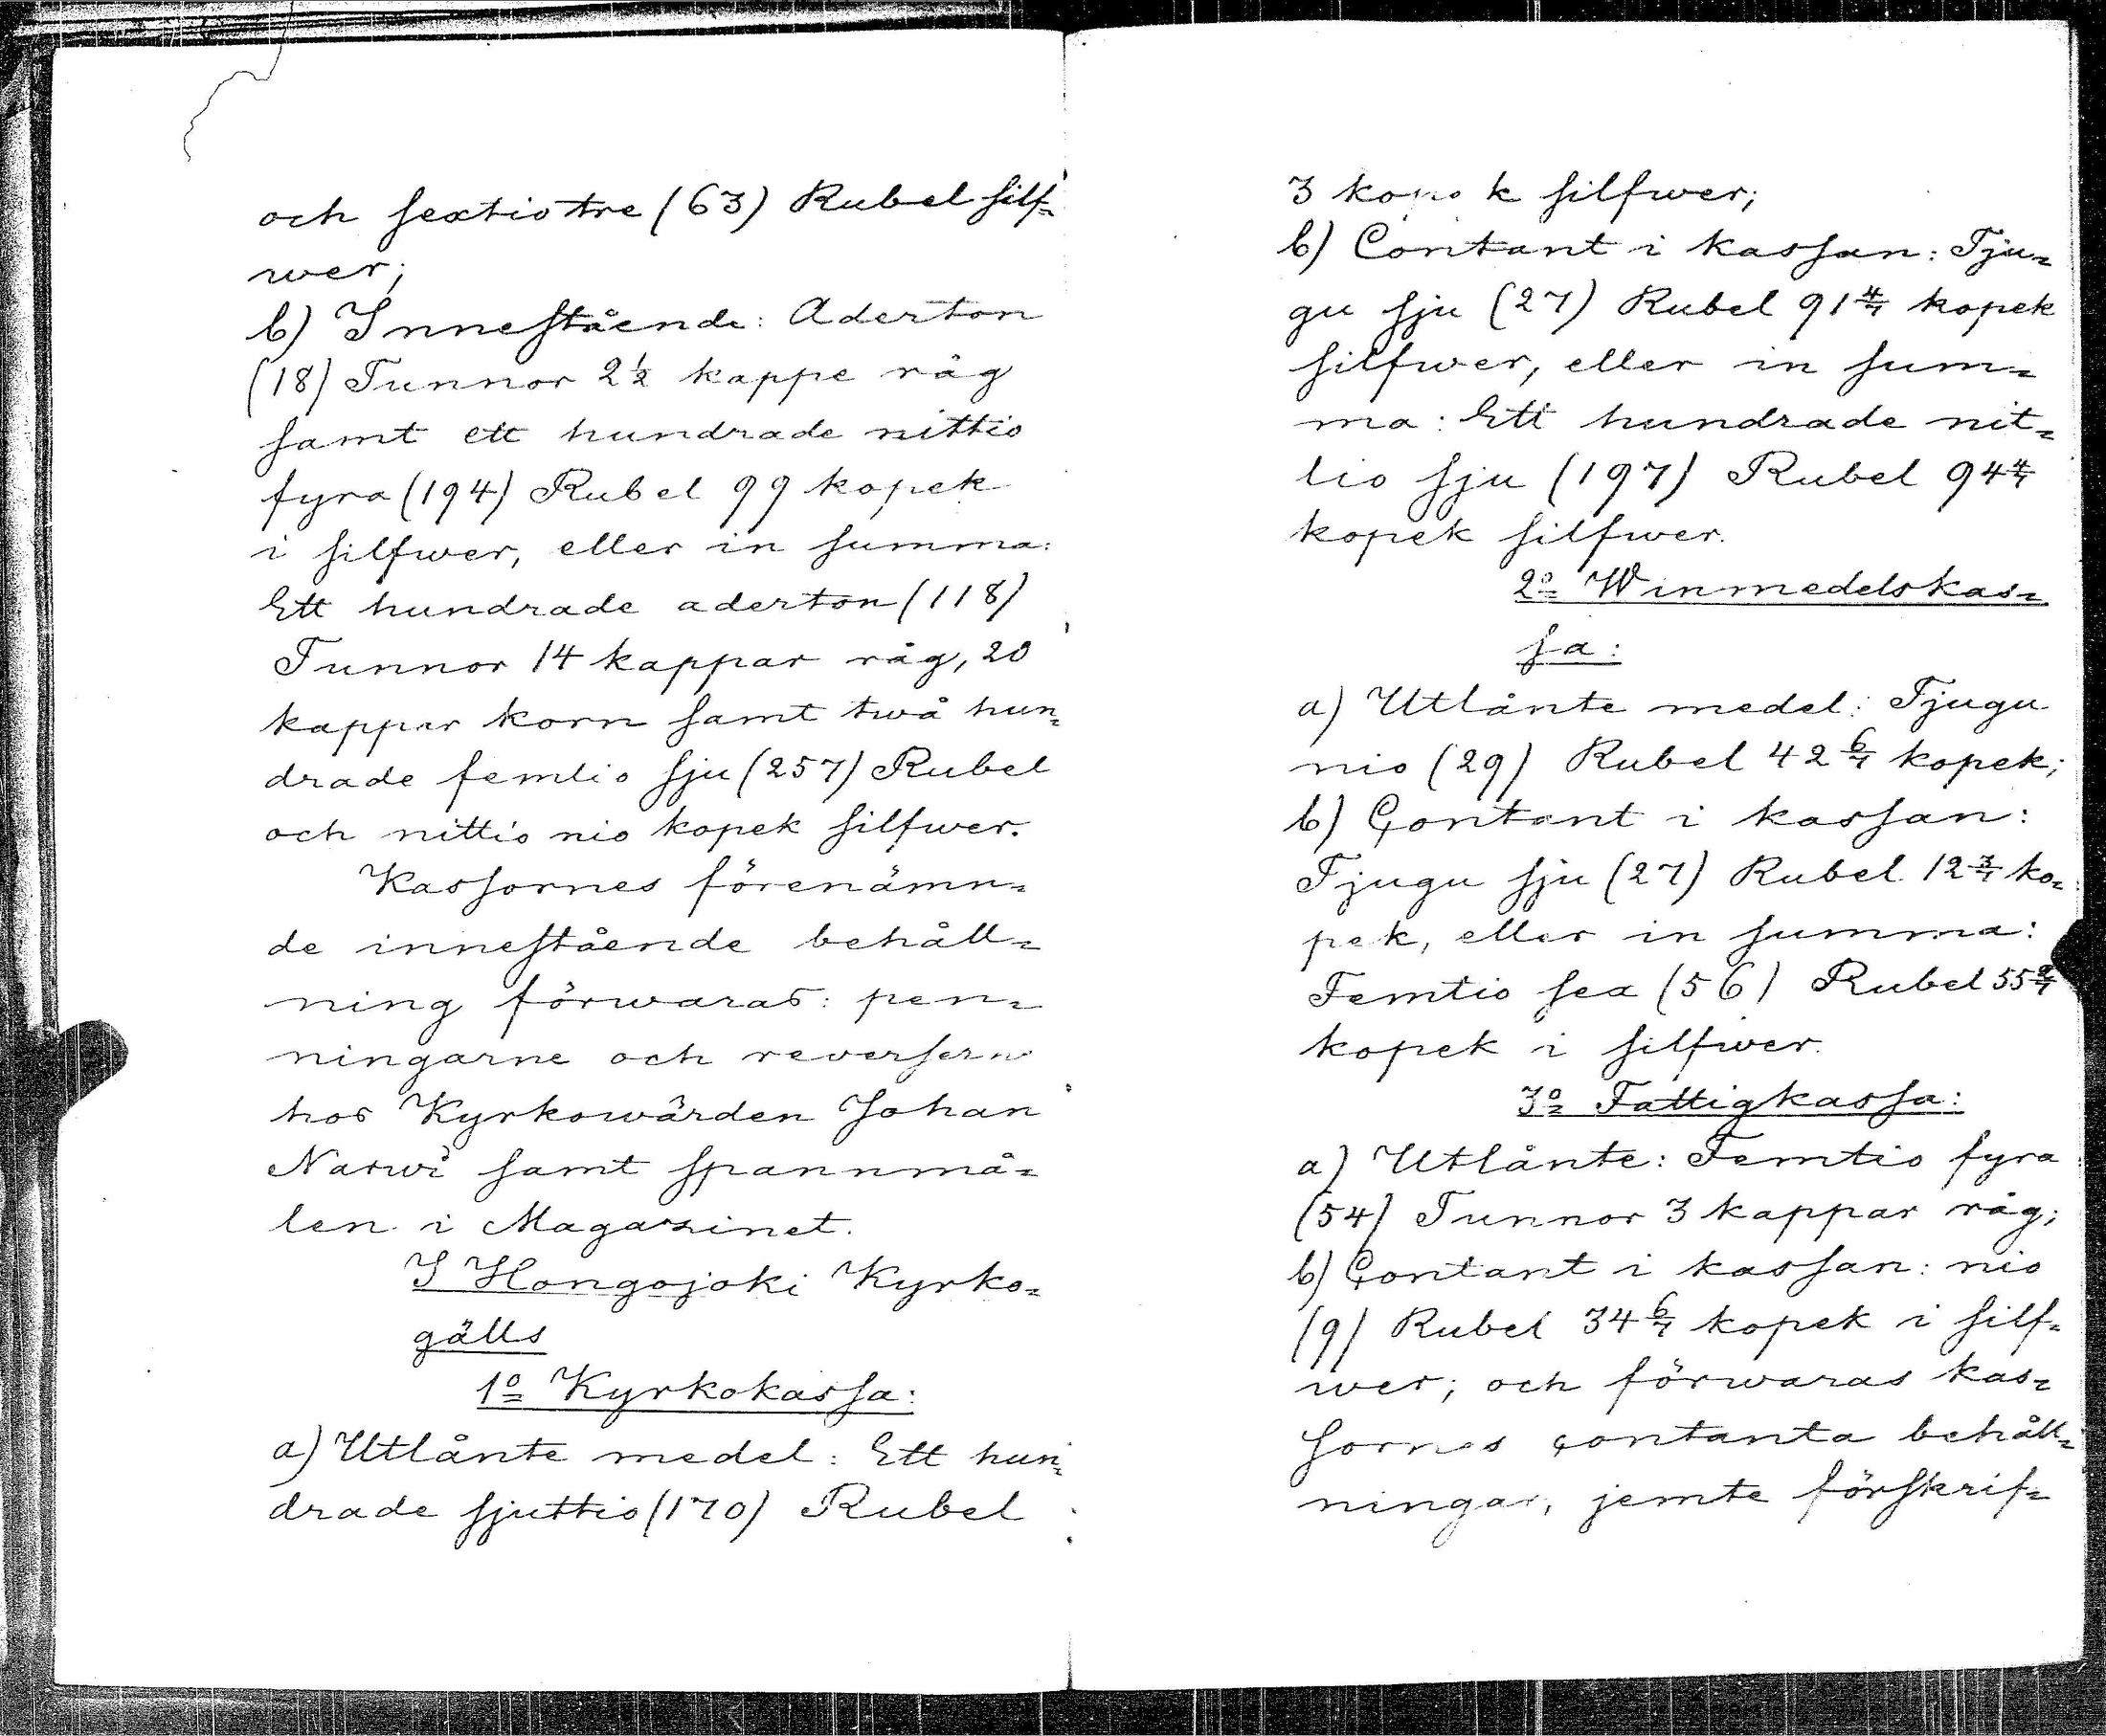 och sextiotre (63) Rubel silf=
wer;
b) Innestående: Aderton
(18) Tunnor 2½ kappe råg
samt ett hundrade nittio
fyra (194) Rubel 99 kopek
i silfwer, eller in summa:
Ett hundrade aderton (118)
Tunnor 14 kappar råg, 20
kappar korn samt twå hun=
drade femtio sju (257) Rubel
och nittio nio kopek silfwer.
Kassornes förenämn=
de innestående behåll=
ning förwaras: pen=
ningarne och reverserne
hos Kyrkowärden Johan
Narwi samt spannmå=
len i Magazinet.
I Hongojoki Kyrko=
gälls
1º Kyrkokassa:
a) Utlånte medel: Ett hun=
drade sjuttio (170) Rubel
3 kopek silfwer;
b) Contant i kassan: Tju=
gu sju (27) Rubel 91 4/7 kopek
silfwer, eller in sum=
ma: Ett hundrade nit=
tio sju (197) Rubel 94 4/7
kopek silfwer.
2º Winmedelskas=
sa:
a) Utlånte medel: Tjugu
nio (29) Rubel 42 6/7 kopek;
b) Contant i kassan:
Tjugu sju (27) Rubel 12 3/7 ko=
pek, eller in summa:
Femtio sex (56) Rubel 55 2/7
kopek i silfwer.
3º Fattigkassa:
a) Utlånte: Femtio fyra
(54) Tunnor 3 kappar råg;
b) Contant i kassan: nio
(9) Rubel 34 6/7 kopek i silf=
wer; och förwaras kas=
sornes contanta behåll=
ningar, jemte förskrif=